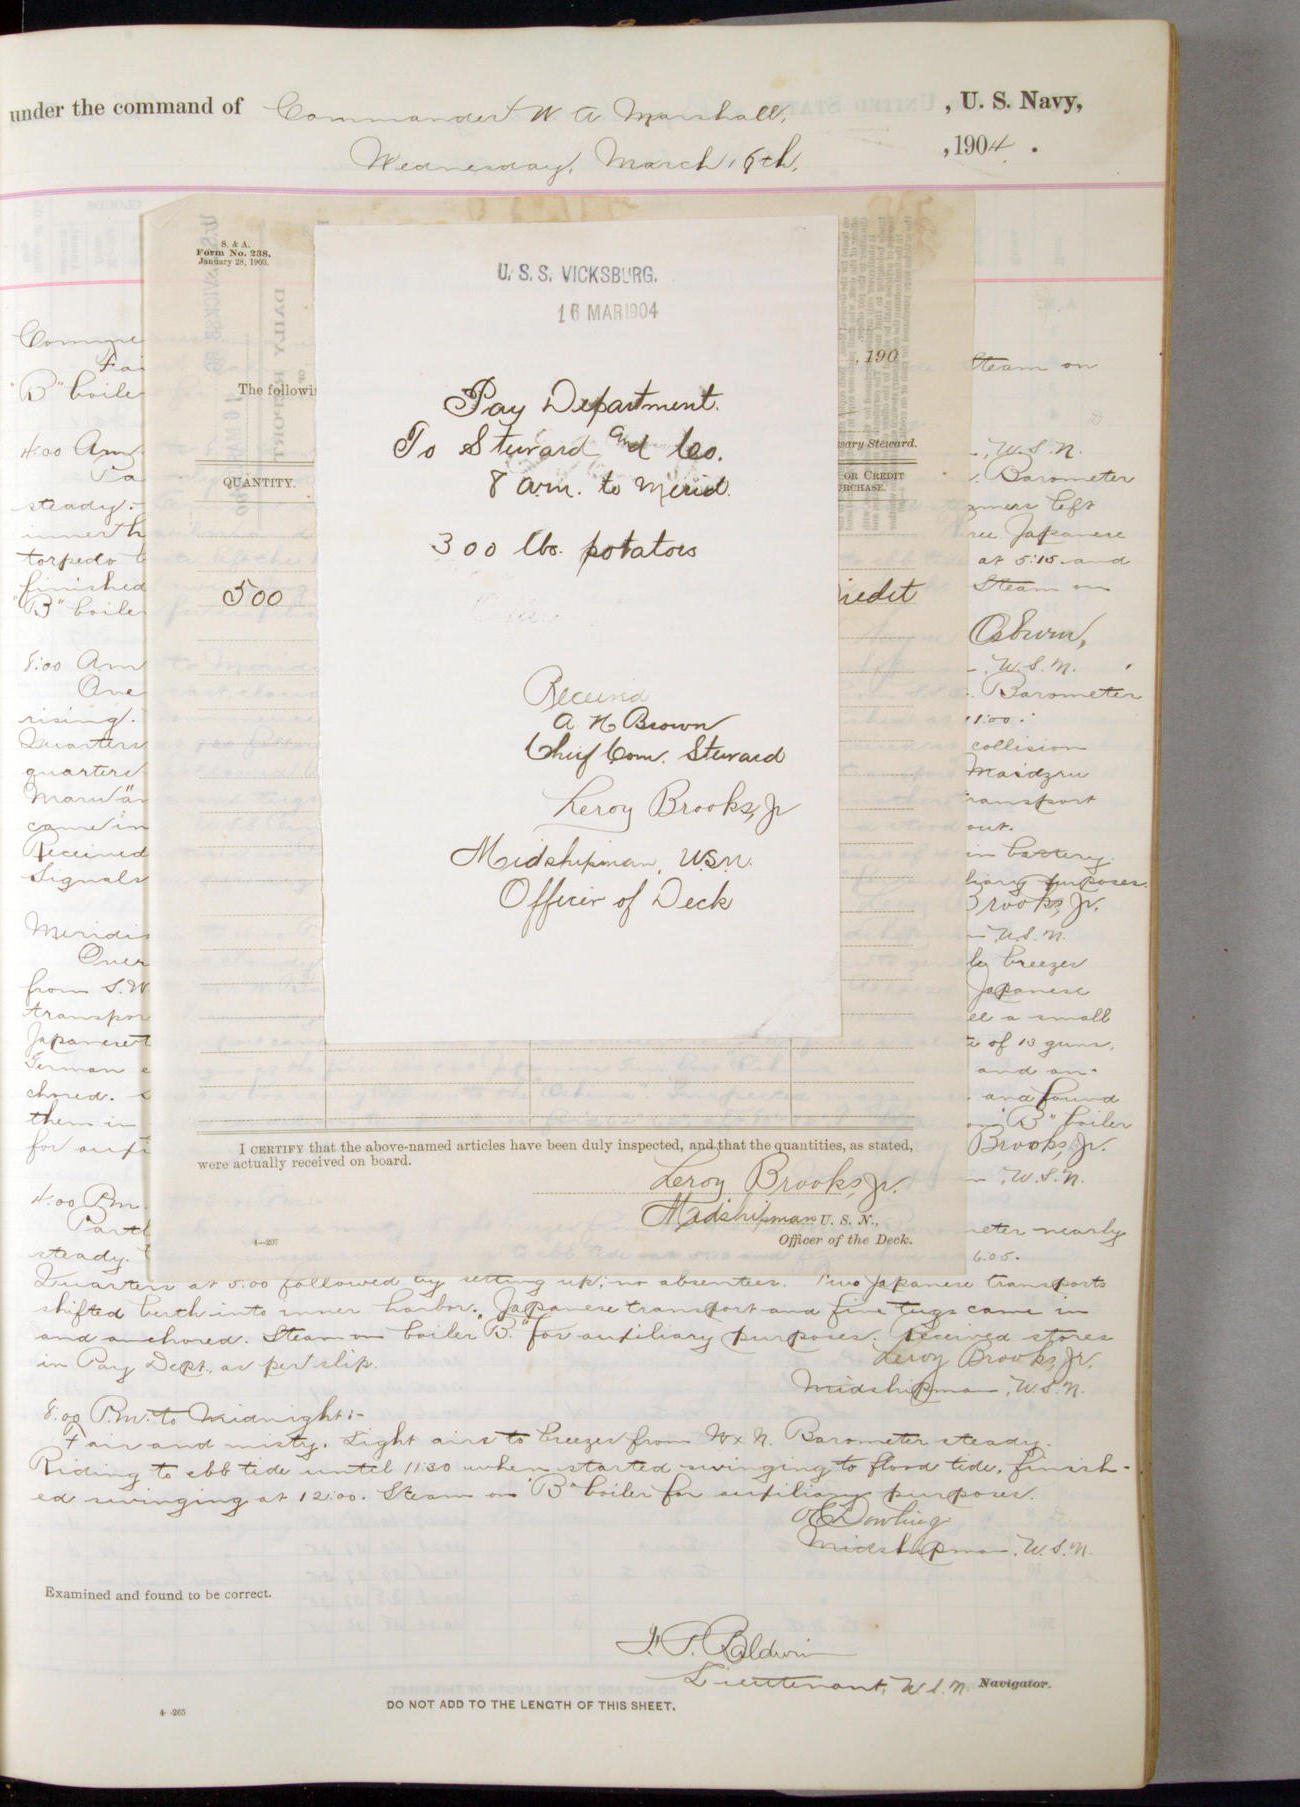 under the command of Commander W A Marshall, , U. S. Navy,
Wednesday, March 16th, , 1904 .
S. & A.
Form No. 238.
January 28, 1903.
U. S. S. VICKSBURG.
16 MAR 1904
, 190
The followin
Pay Department.
To Steward and Co.
8 a.m. to merid.
300 lbs. potatoes
Received
A N Brown
Chief Com. Steward
Leroy Brooks, Jr
Midshipman, U.S.N.
Officer of Deck
sary Steward.
QUANTITY.
OR CREDIT
RCHASE.
500
redit
Comme
Fai
Steam on
"B" boile
4:00 Am
, U.S.N.
Pa
. Barometer
steady.
amers left
inner h
ree Japanese
torpedo b
at 5:15 and
finished
Steam on
"B" boile
Osburn,
8:00 Am
, U.S.N.
Ove
. Barometer
rising.
11:00.
Quarters
collision
quarters
Maidzru
Maru" an
ransport
came in
out.
Received
in battery.
Signals
liary purposes.
Brooks, Jr.
Meridi
U.S.N.
Over
ly breezes
from S.W
Japanese
transpor
ll a small
Japanese t
te of 13 guns.
German c
and an-
chored.
and found
them in
on "B" boiler
for auxi
Brooks, Jr.
, U.S.N.
I CERTIFY that the above-named articles have been duly inspected, and that the quantities, as stated,
were actually received on board.
Leroy Brooks, Jr.
Midshipman U. S. N.,
Officer of the Deck.
4—207
4:00 P.m.
Partl
meter nearly
steady.
6.05.
Quarters at 5:00 followed by setting up; no absentees. Two Japanese transports
shifted berth into inner harbor. Japanese transport and five tugs came in
and anchored. Steam on boiler "B" for auxiliary purposes. Received stores
in Pay Dept., as per slip.
Leroy Brooks, Jr.
Midshipman, U.S.N.
8:00 P.m. to Midnight:-
Fair and misty. Light airs to breezes from W x N. Barometer steady.
Riding to ebb tide until 11:30 when started swinging to flood tide, finish-
ed swinging at 12:00. Steam on "B" boiler for auxiliary purposes.
Dowling
Midshipman, U.S.N.
Examined and found to be correct.
Baldwin
Lieutenant, U.S.N. Navigator.
DO NOT ADD TO THE LENGTH OF THIS SHEET.
4—265